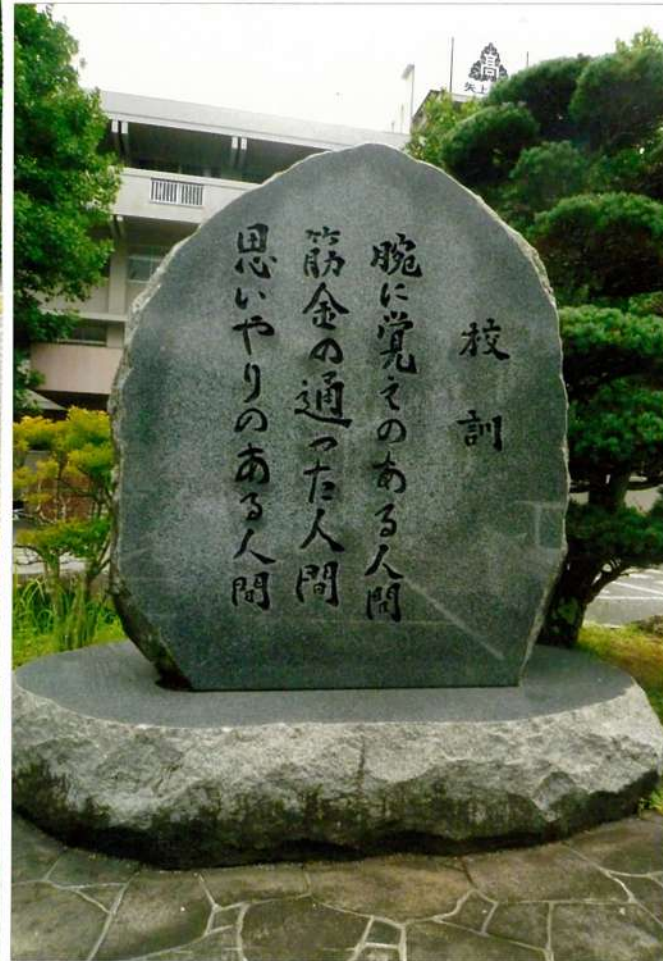 校訓
腕に覚えのある人間
筋金の通った人間
思いやりのある人間
高
矢上